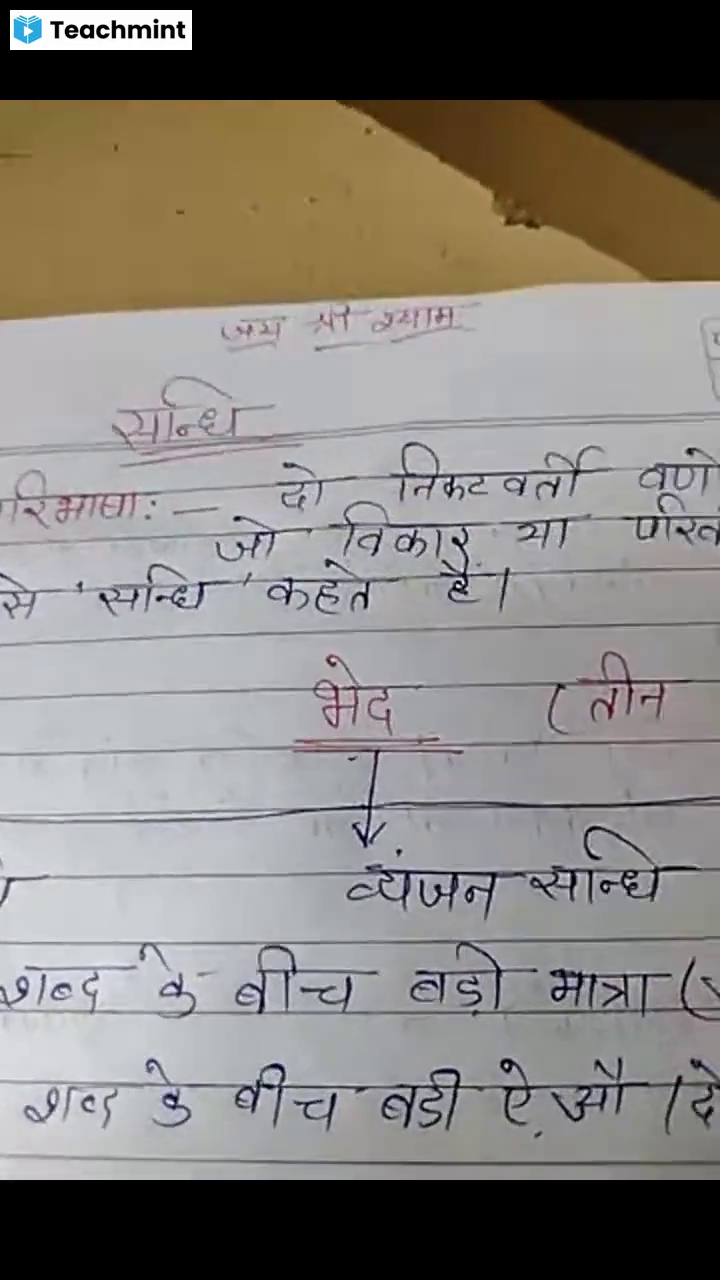 Teachmint
जय श्री श्याम
सन्धि
रिभाषा:- दो निकटवर्ती वर्णो
जो विकार या परिव
से 'सन्धि' कहते है।
भेद (तीन
व्यंजन सन्धि
शब्द के बीच बड़ी मात्रा (
शब्द के बीच बडी ऐ, औ (दे